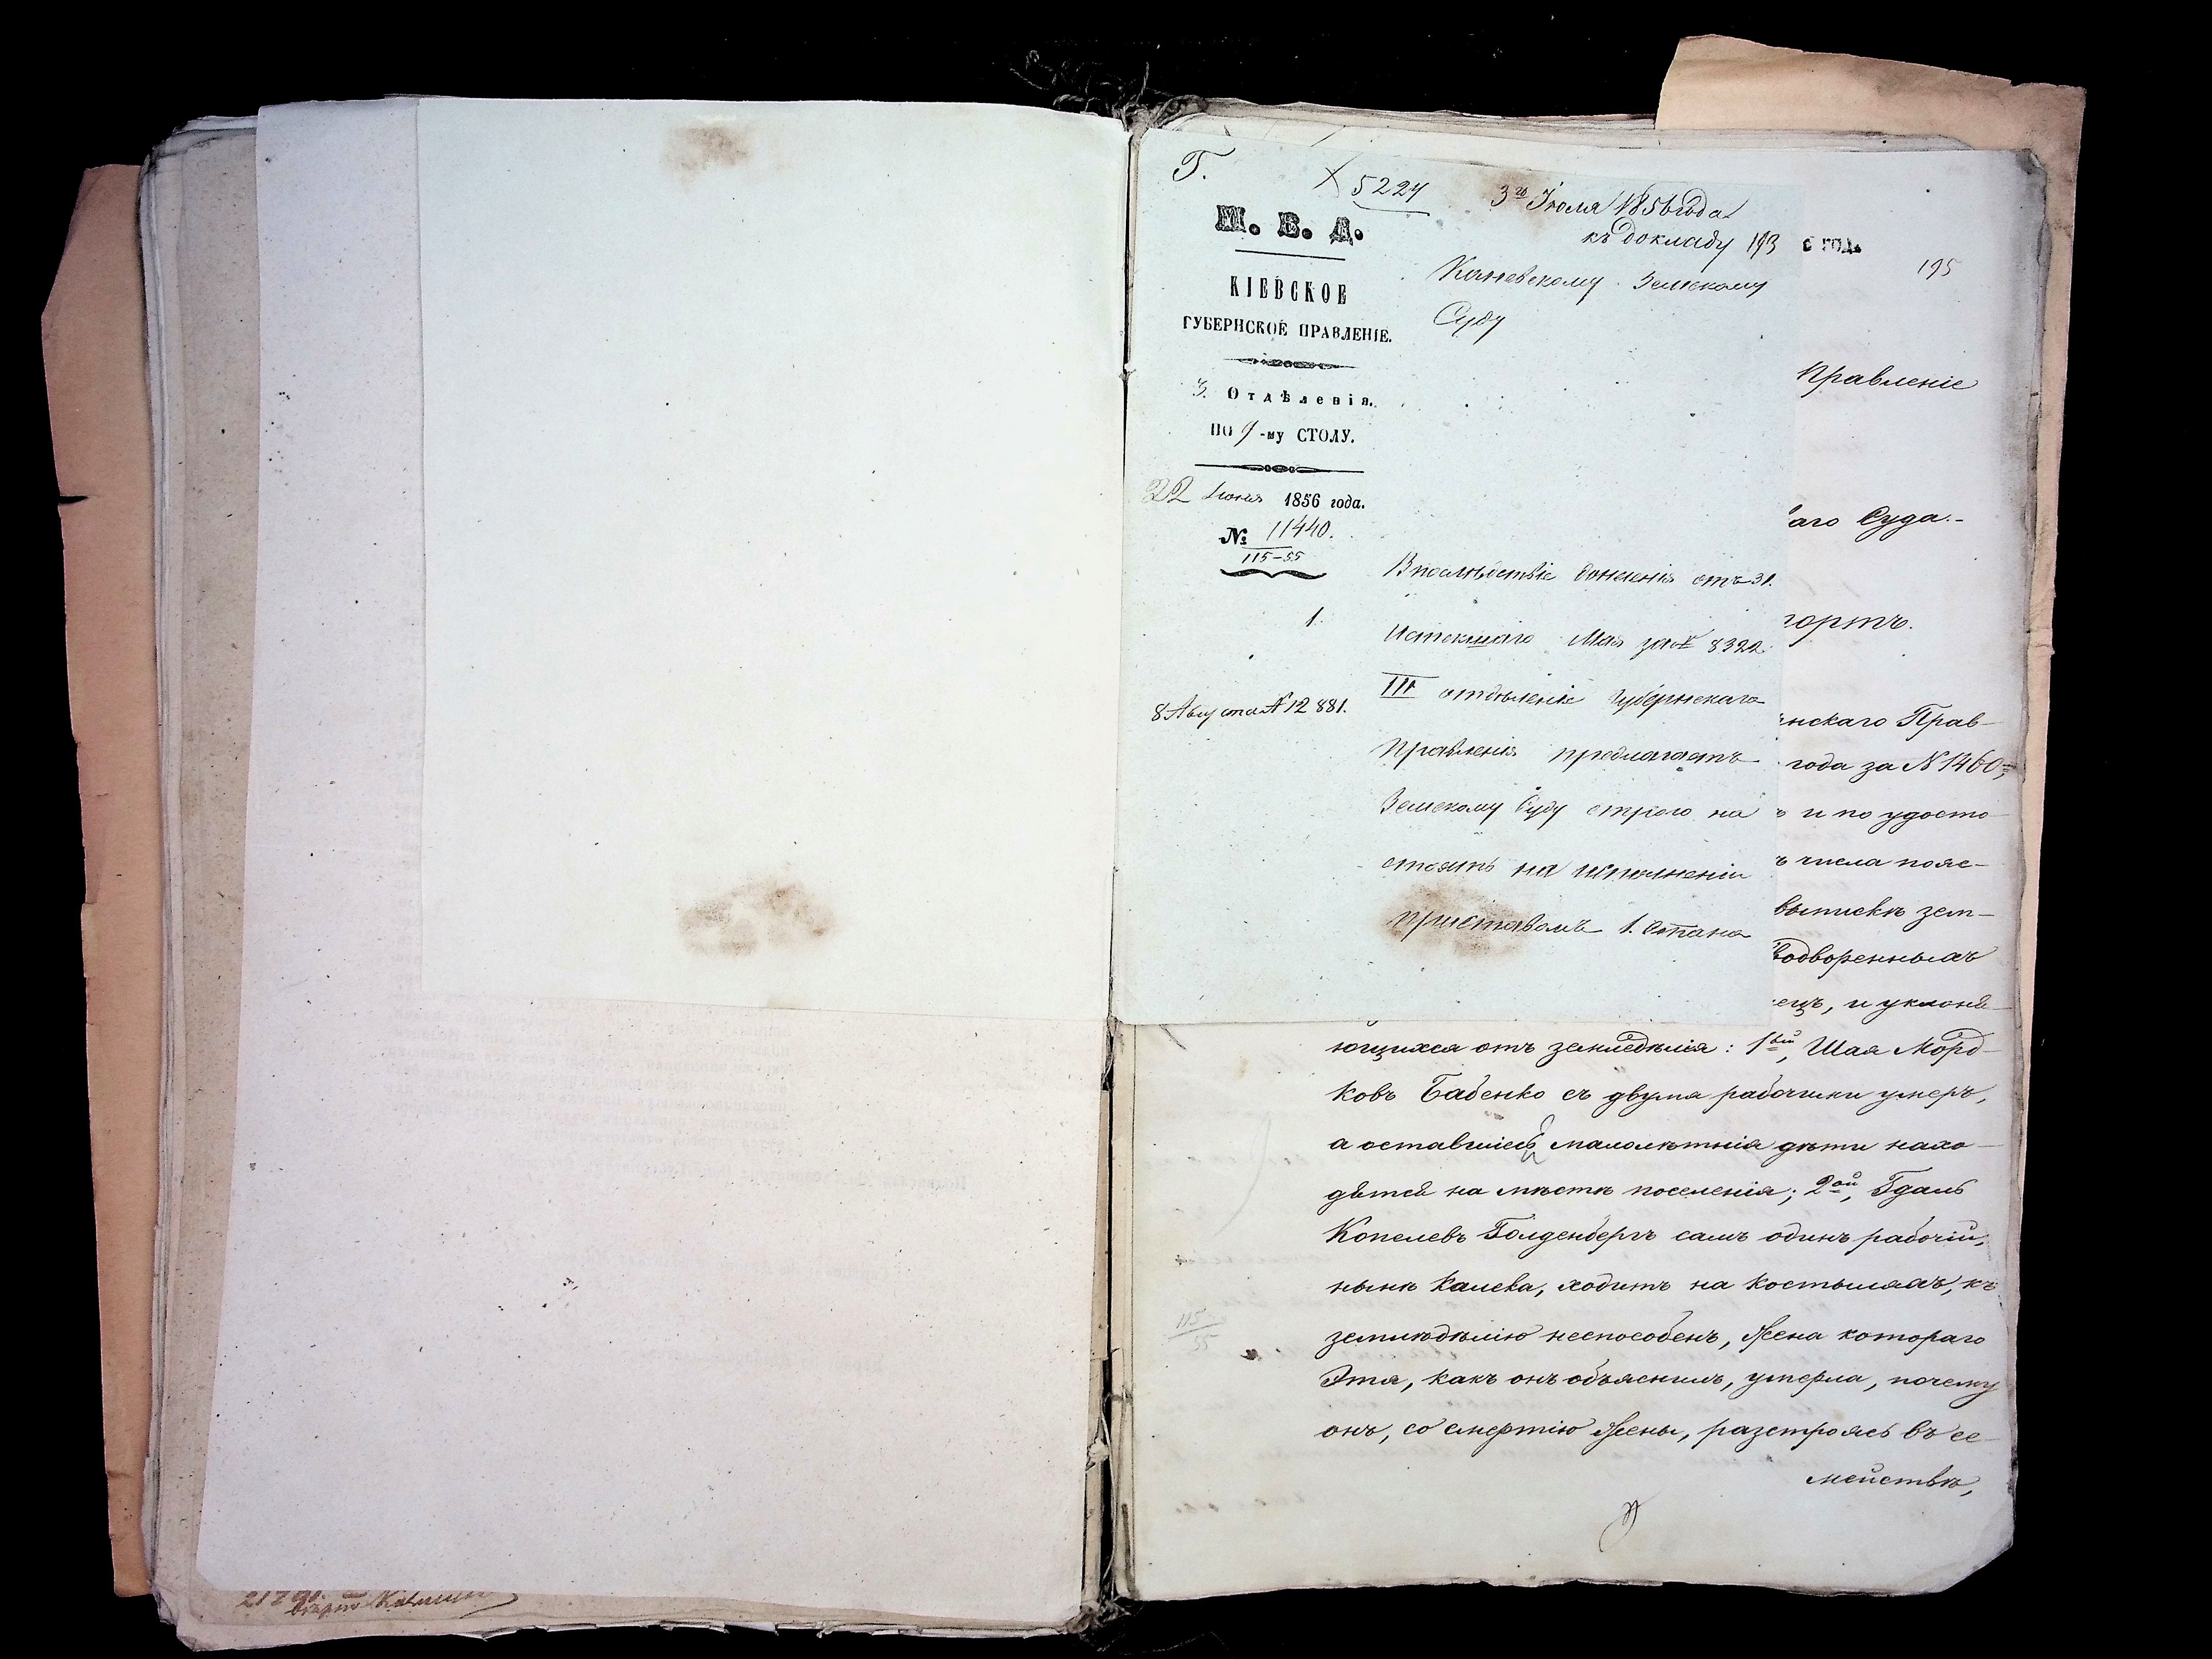 Г.
5224
3го Іюля 1856 года
М. В. Д.
къ докладу 193
6 ГОД.
195
Каневскому Земскому
Суду
КІЕВСКОЕ
ГУБЕРНСКОЕ ПРАВЛЕНІЕ.
3. Отдѣленія.
ПО 9-му СТОЛУ.
22 Іюня 1856 года.
№ 11440.
115-55
1.
8 Августа № 12881.
Впослѣдствіе донесенія отъ 31.
истекшаго Мая за № 8322
III отдѣленіе Губернскаго
Правленія предлагаетъ
Земскому Суду строго на
стоять на исполненіи
Приставомъ 1. Стана
Правленіе
аго Суда.-
портъ.
нскаго Прав-
года за № 1460;
и по удосто
ъ числа пояс-
выпискѣ зем-
водворенныхъ
ецъ, и уклоня-
ющихся отъ земледѣлія: 1ый, Шая Морд-
ковъ Бабенко съ двумя рабочими умеръ,
а оставшіесь малолѣтнія дѣти нахо-
дятся на мѣстѣ поселенія; 2ой, Гдаль
Копелевъ Голденбергъ самъ одинъ рабочій,
нынѣ калека, ходитъ на костыляхъ, къ
земледѣлію неспособенъ, жена котораго
Этя, какъ онъ объяснилъ, умерла, почему
онъ, со смертію жены, разстроясь въ се-
мействѣ,
115
55